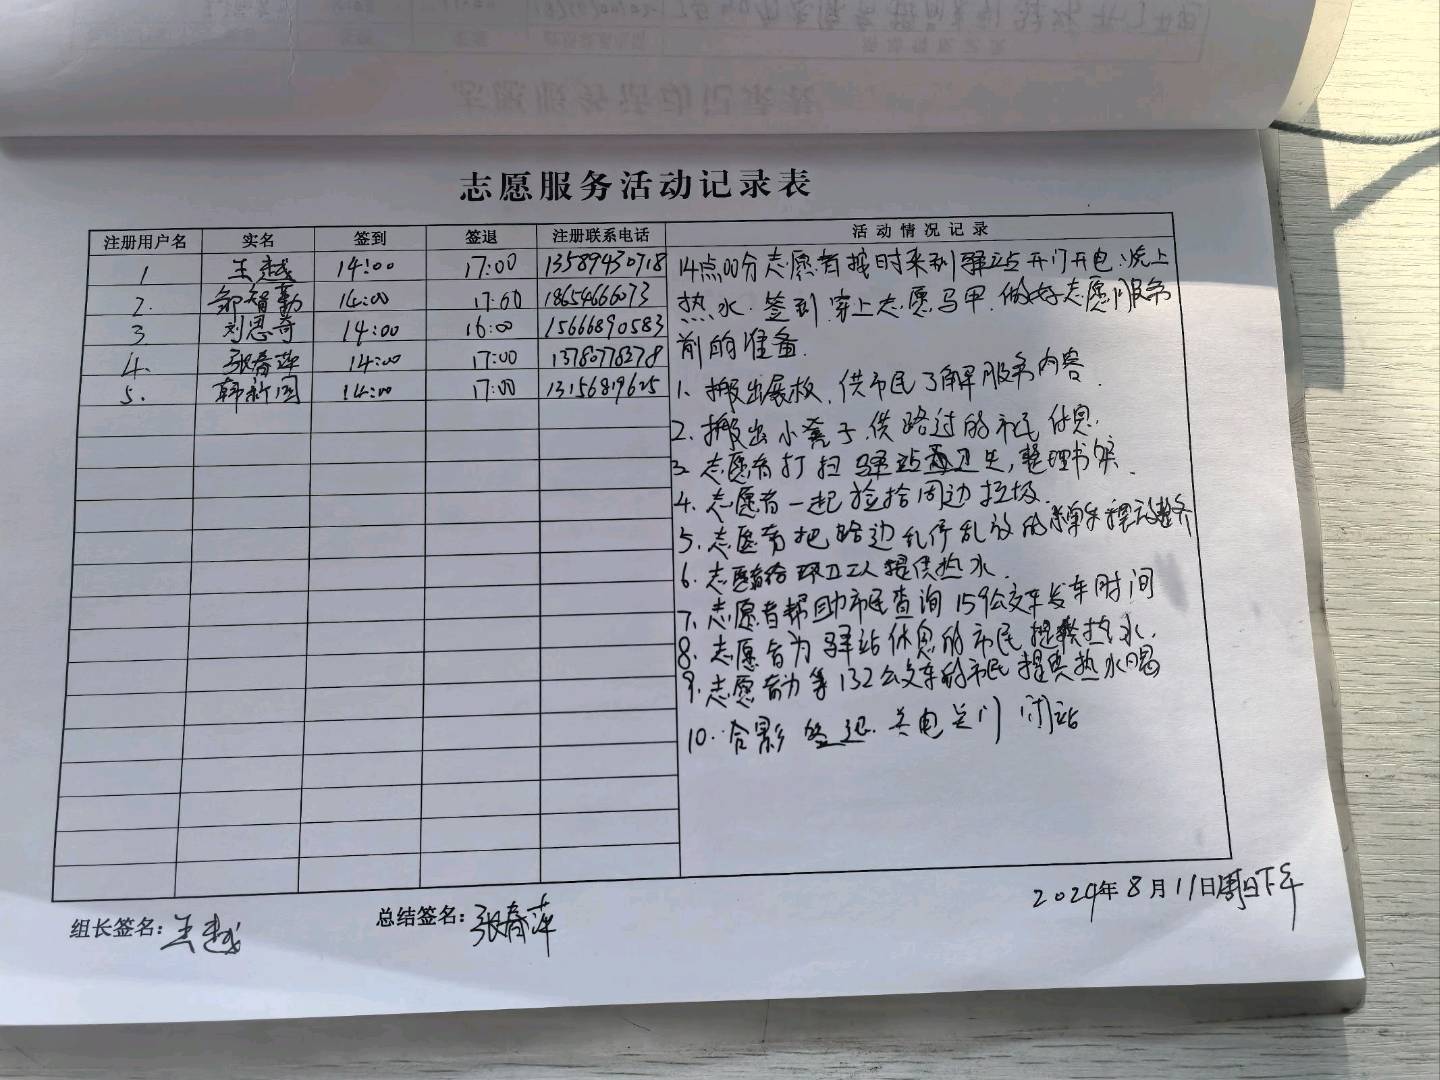 志愿服务活动记录表
注册用户名 实名 签到 签退 注册联系电话 活动情况记录
1 王越 14:00 17:00 13589430718
2. 郭智勤 14:00 17:00 18654666073
3 刘恩奇 14:00 16:00 15666890583
4. 张春萍 14:00 17:00 13780778378
5. 韩新国 14:00 17:00 13156819625
14点00分志愿者按时来到驿站开门开电.烧上
热水.签到.穿上志愿马甲.做好志愿服务
前的准备.
1、搬出展板,供市民了解服务内容.
2.搬出小凳子.供路过的市民休息.
3.志愿者打扫驿站卫生,整理书架.
4.志愿者一起捡拾周边垃圾.
5.志愿者把路边乱停乱放的单车摆放整齐
6.志愿者给环卫工人提供热水.
7.志愿者帮助市民查询159公交车发车时间
8.志愿者为驿站休息的市民提供热水.
9.志愿者为等132公交车的市民提供热水喝
10..合影 签退.关电关门 闭站
组长签名：王越
总结签名：张春萍
2024年8月11日周日下午